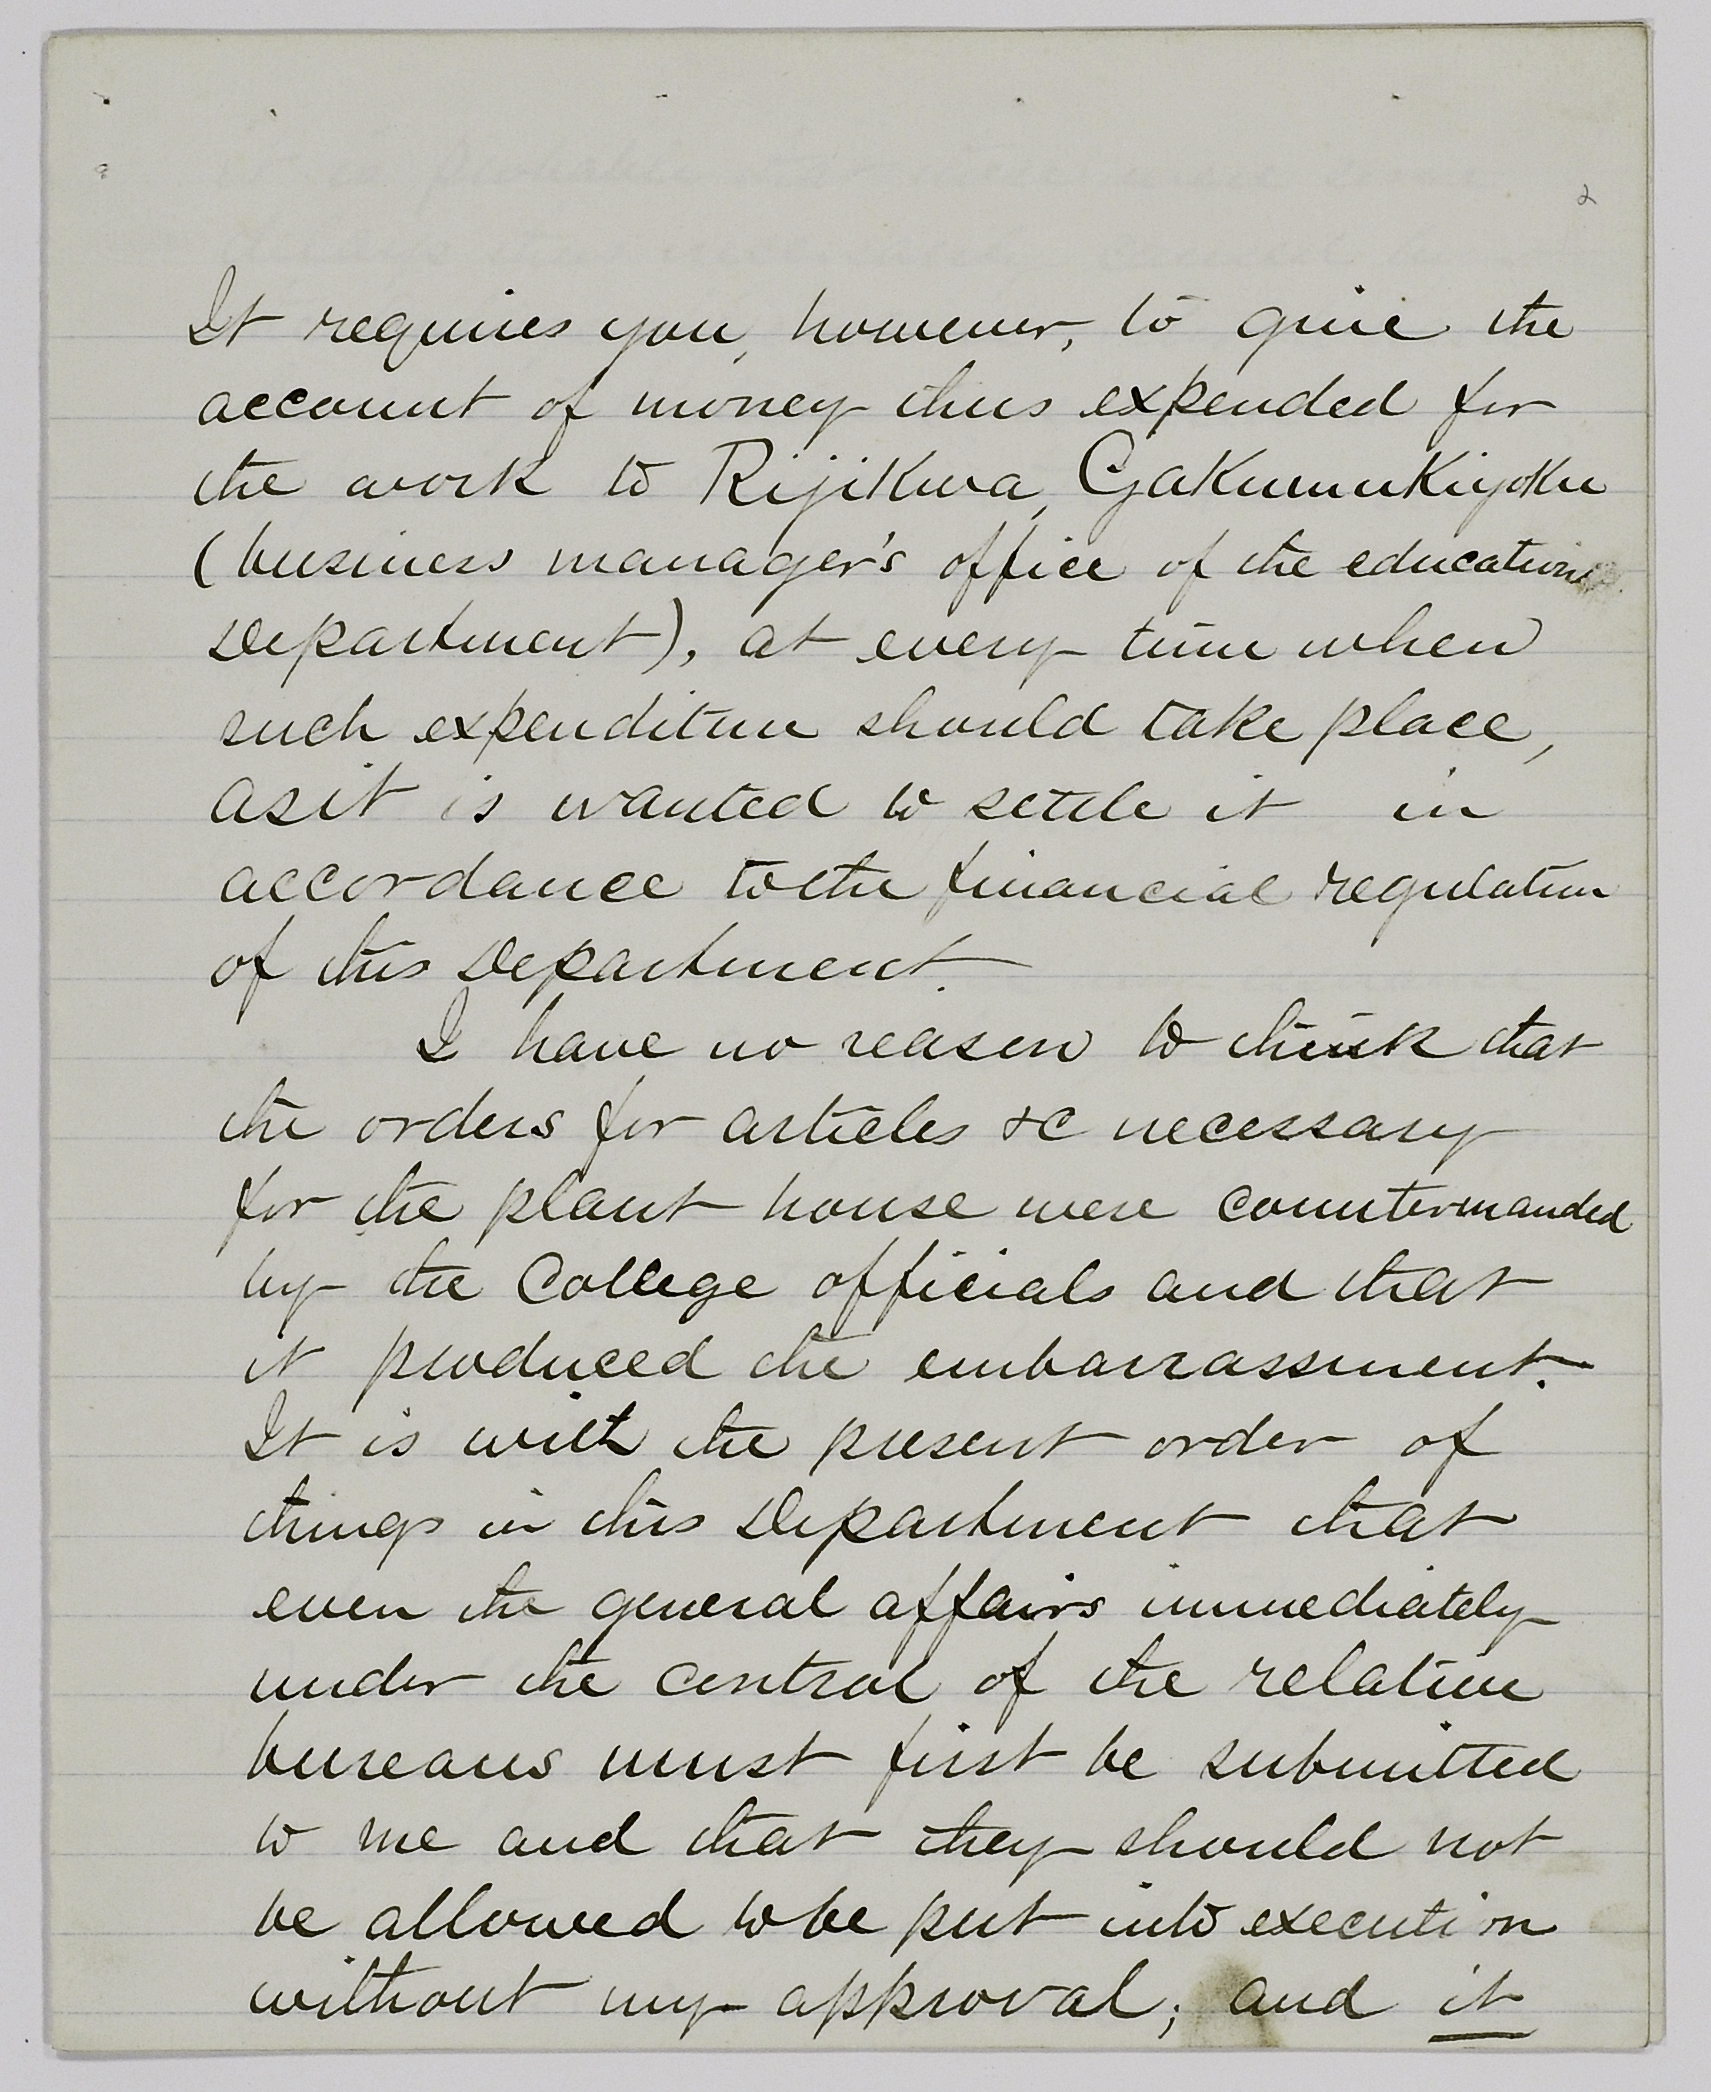 2
It requires you, however, to give the
account of money thus expended for
the work to Rijikwa, Gakumukiyoku
(business manager's office of the education
Department), at every time when
such expenditure should take place,
as it is wanted to settle it in
accordance to the financial regulation
of this Department.
I have no reason to think that
the orders for articles &c necessary
for the plant house were countermanded
by the College officials and that
it produced the embarrassment.
It is with the present order of
things in this Department that
even the general affairs immediately
under the control of the relative
bureaus must first be submitted
to me and that they should not
be allowed to be put into execution
without my approval; and it